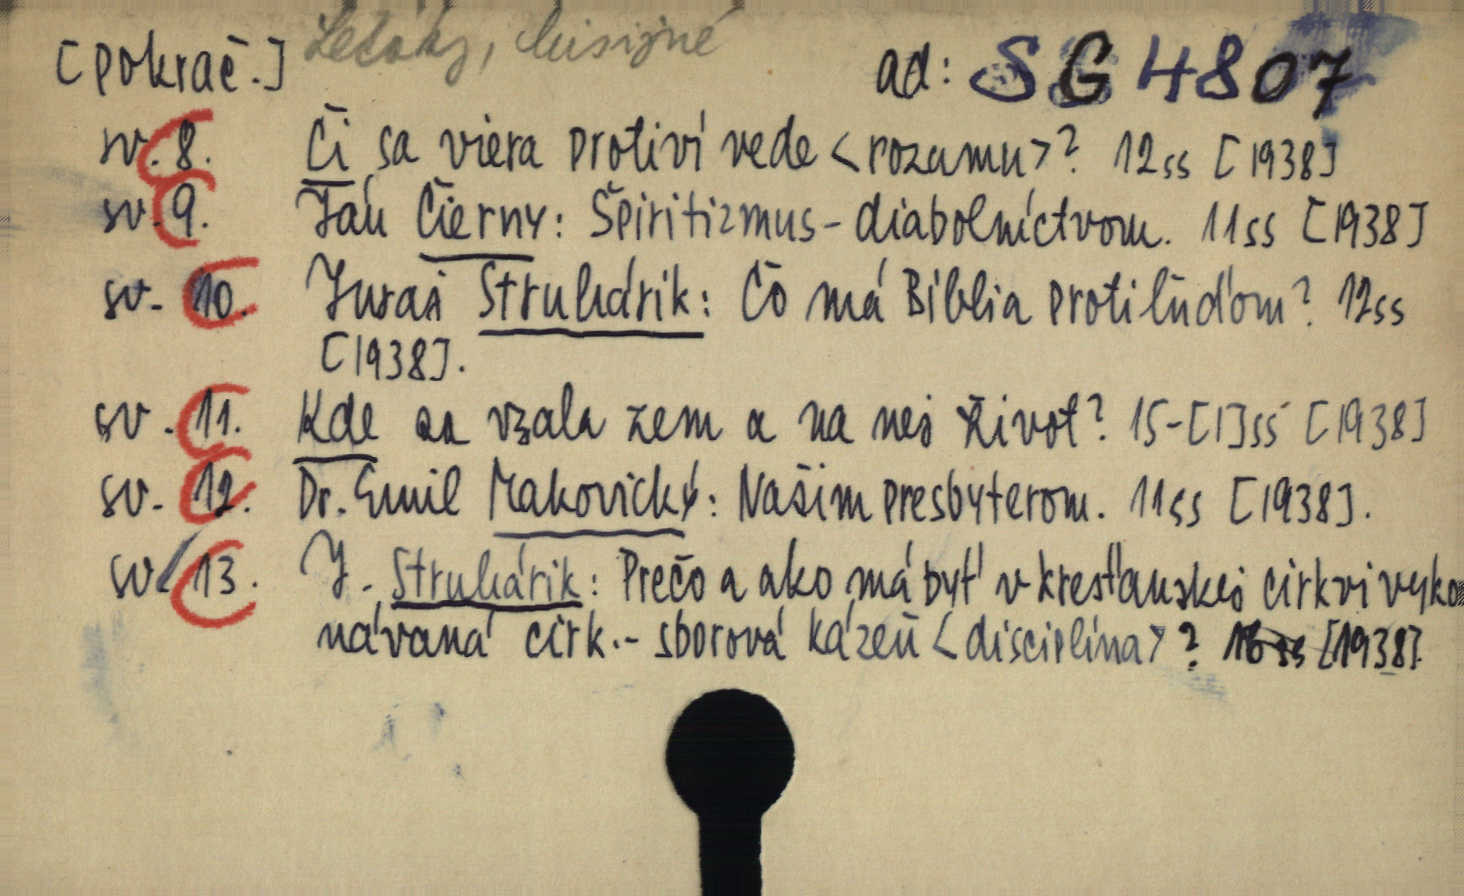 [Pokrač.] Letáky, misijné ad: SG 4807
sv. 8. Či sa viera protiví vede <rozumu>? 12ss [1938]
sv. 9. Ján Čierny: Špiritizmus - diabolníctvom. 11ss [1938]
sv. 10. Juraj Struhárik: Čo má Biblia proti ľuďom? 12ss
[1938].
sv. 11. Kde sa vzala zem a na nej život? 15-[1]ss [1938]
sv. 12. Dr. Emil Makovický: Našim presbyterom. 11ss [1938].
sv. 13. J. Struhárik: Prečo a ako má byť v kresťanskej cirkvi vyko
návaná cirk.- sborová kázeň <disciplína>? 16ss [1938].